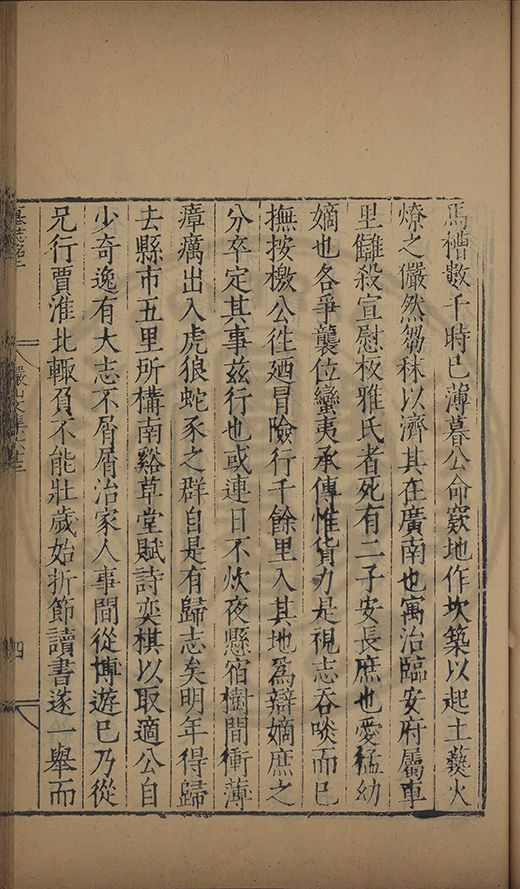 馬槽數千時已薄暮公命窾地作坎築以起土爇火
燎之儼然芻秣以濟其在廣南也寓治臨安府屬車
里讎殺宣慰板雅氏者死有二子安長庶也愛猛幼
嫡也各爭襲位蠻夷承傳惟貨力是視志吞啖而已
撫按檄公徃廼冒險行千餘里入其地爲辯嫡庶之
分卒定其事兹行也或連日不炊夜懸宿樹間衝薄
瘴癘出入虎狼蛇豕之群自是有歸志矣明年得歸
去縣市五里所構南谿草堂賦詩奕棋以取適公自
少奇逸有大志不屑屑治家人事間從博遊已乃從
兄行賈淮北輙負不能壯歲始折節讀書遂一舉而
墓誌銘
儼山文集卷
四